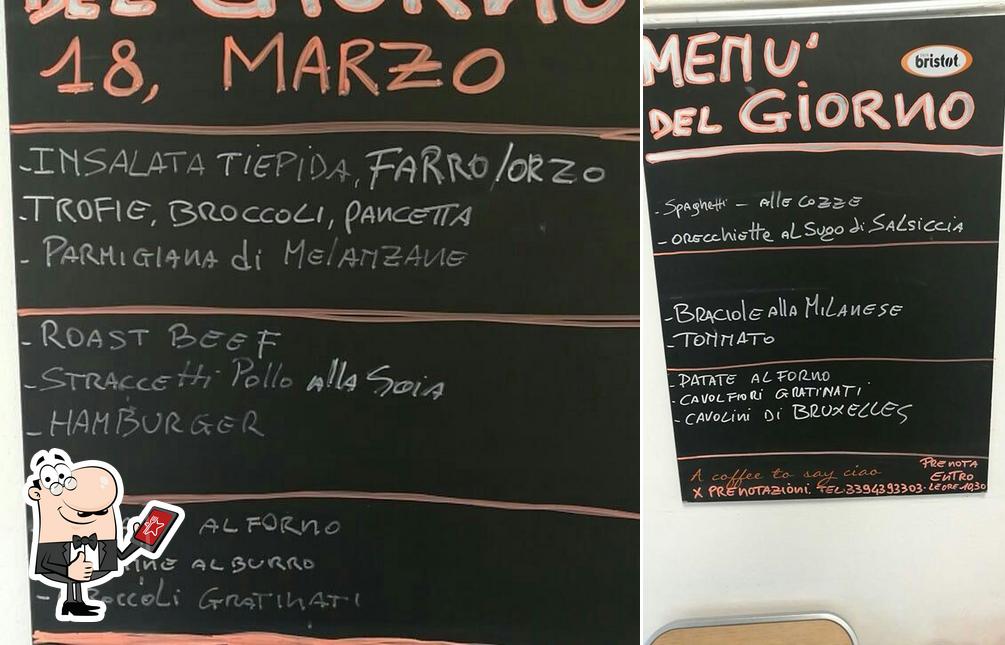 DEL GIORNO
18, MARZO
- INSALATA TIEPIDA, FARRO/ORZO
- TROFIE, BROCCOLI, PANCETTA
- PARMIGIANA di MelANZANE
- ROAST BEEF
- STRACCETTI Pollo alla Soia
- HAMBURGER
AL FORNO
AL BURRO
- BROCCOLI GRATINATI
MENU'
bristot
DEL GIORNO
- Spaghetti - alle COZZE
- ORECCHIETTE AL SUGO di SALSICCIA
- BRACIOLE alla MILANESE
- TONNATO
- PATATE AL FORNO
- CAVOLFIORI GRATINATI
- CAVOLINI DI BRUXELLES
A coffee to say ciao
PRENOTA
ENTRO
LE ORE 10,30
X PRENOTAZIONI. TEL. 3394393303.